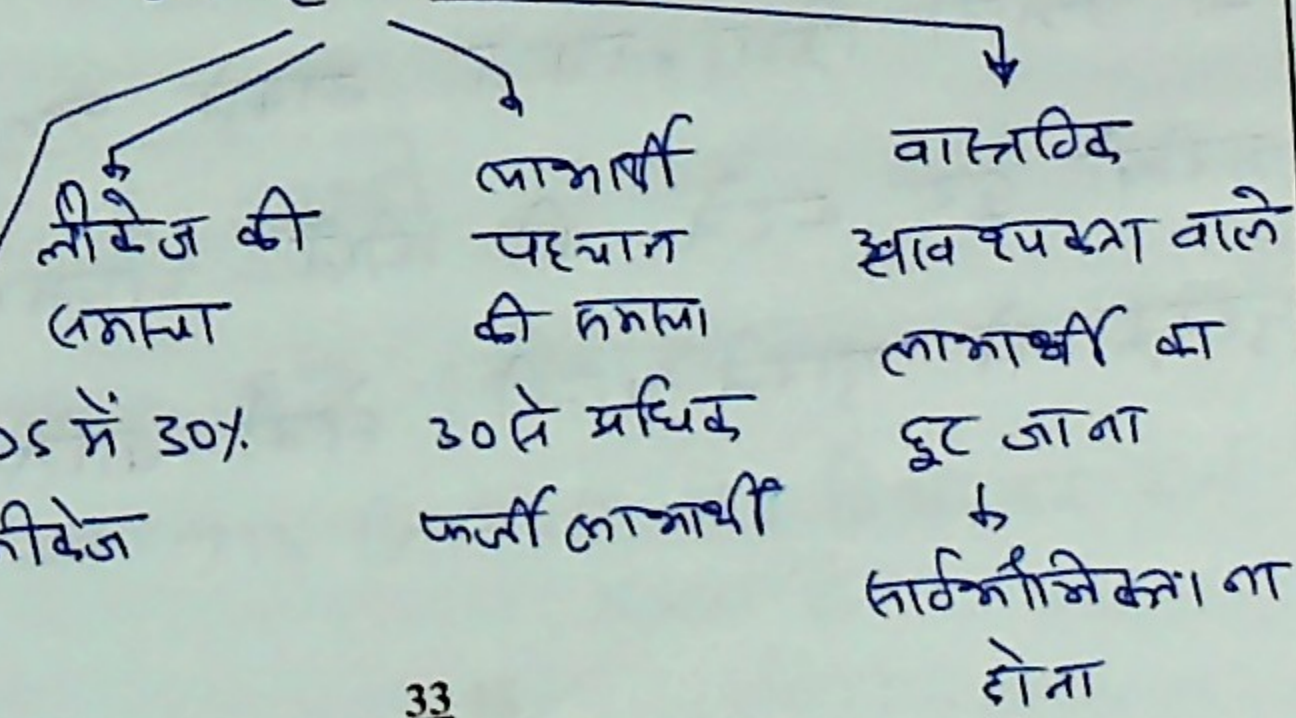 लीकेज की
समस्या
DS में 30%
लीकेज
लाभार्थी
पहचान
की समस्या
30 से अधिक
फर्जी लाभार्थी
वास्तविक
आवश्यकता वाले
लाभार्थी का
छूट जाना
सार्वभौमिकता ना
होना
33